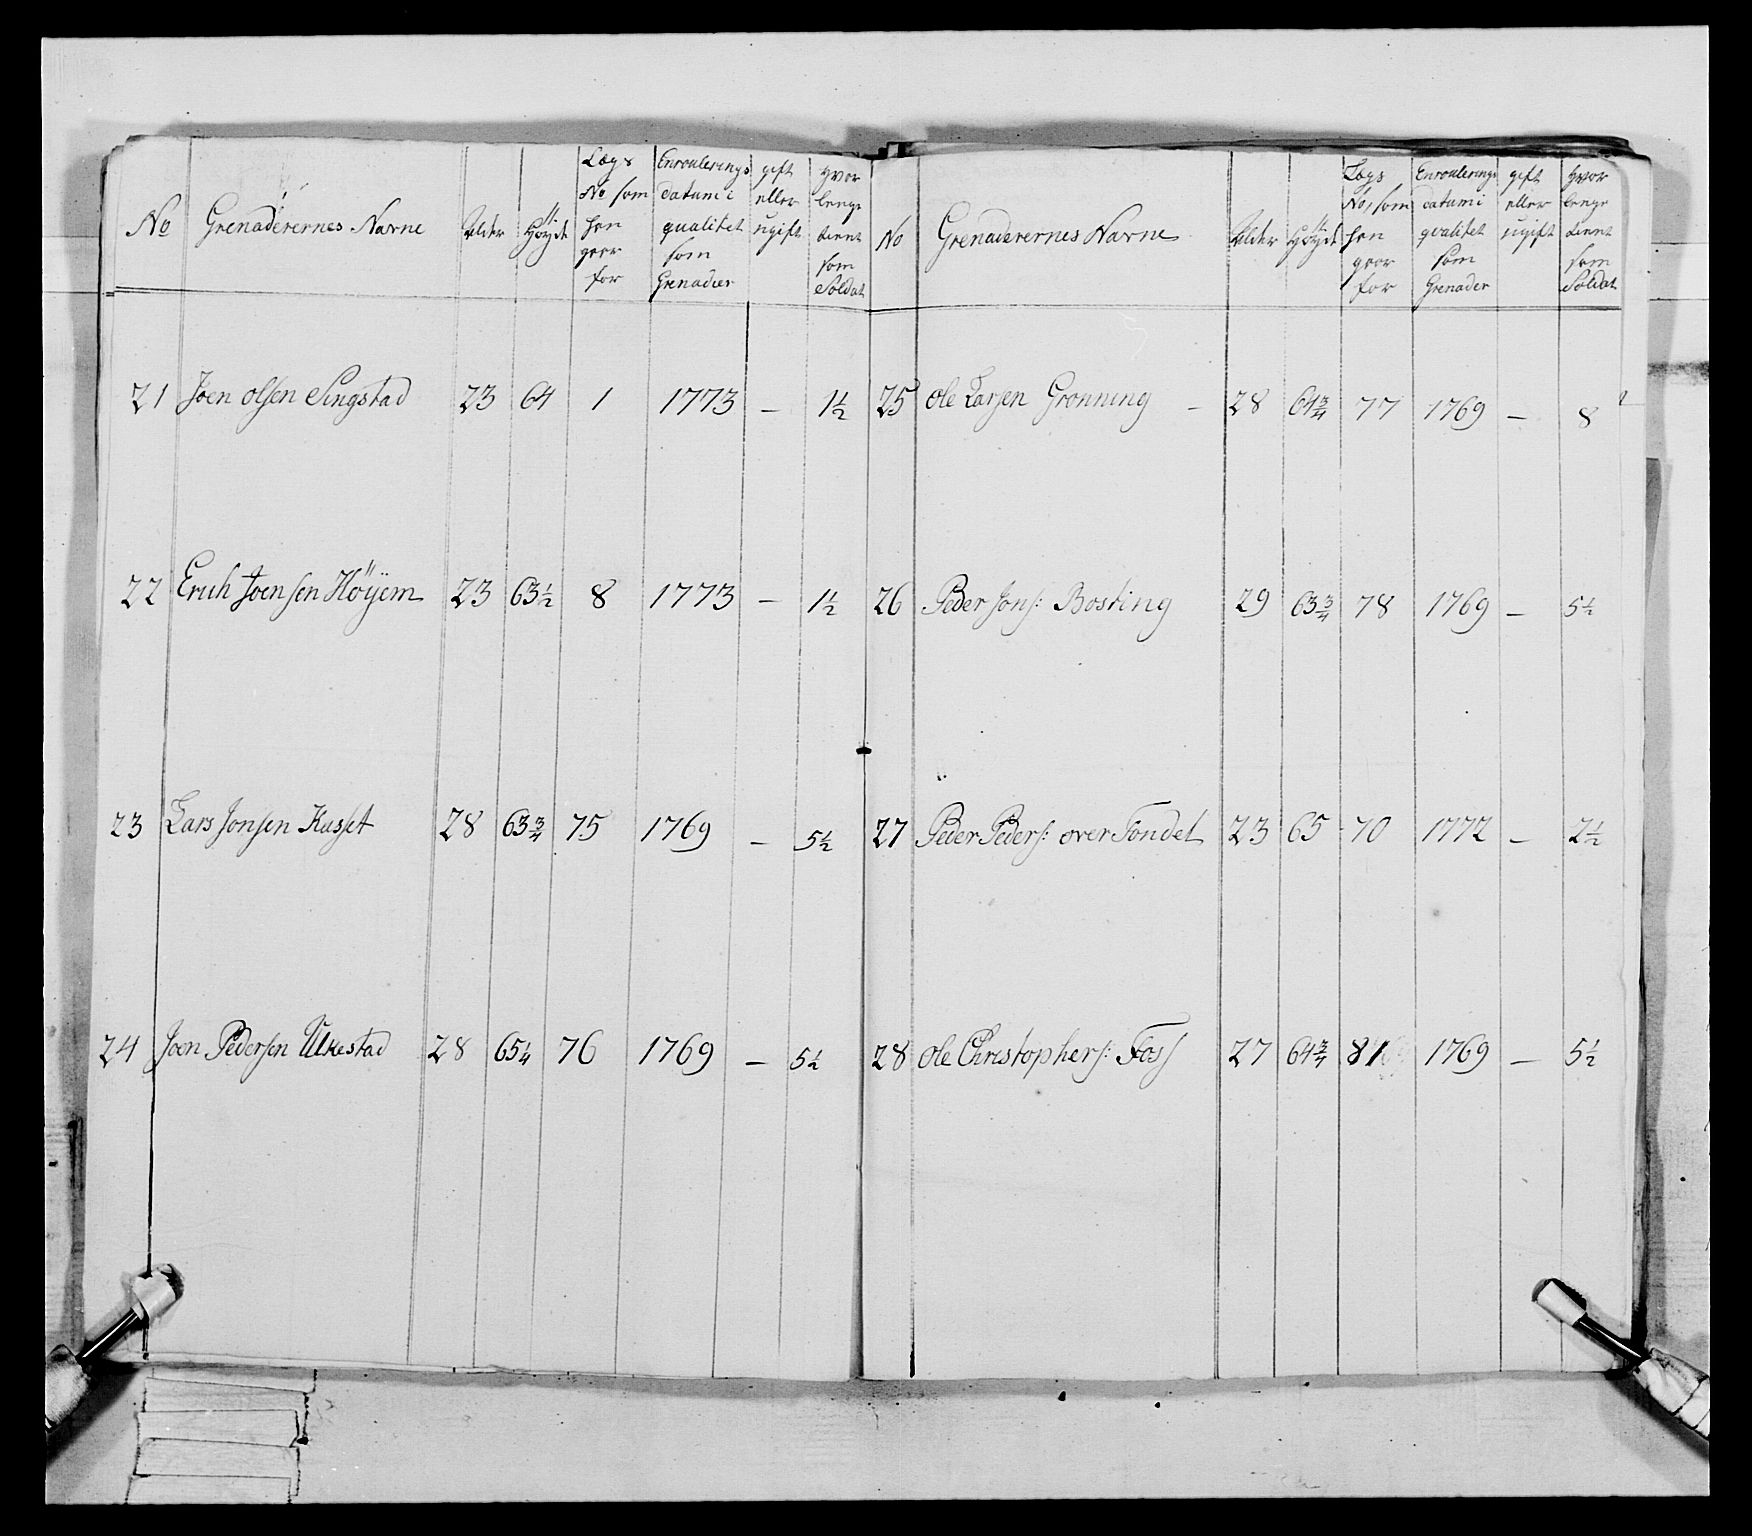 No Grenaderernes Navne Alder Höyde Lægs No som han geer for Enroulerings datum i qualitet som Grenadeer gift eller ugift hvor lenge tient som Soldat
21 Joen olsen Singstad 23 64 1 1773 — 1½
22 Erich Joensen Höyem 23 63½ 8 1773 — 1½
23 Lars Jonsen Kusset 28 63¾ 75 1769 — 5½
24 Joen Pedersen Ulkestad 28 65¼ 76 1769 — 5½
No Grenaderernes Navne Alder Höyde Lægs No, som han geer for Enroulerings datum i qvalitet som Grenader gift eller ugift hvor lenge tient som Soldat
25 Ole Larsen Gronning – 28 64¾ 77 1769 — 8
26 Peder Jons: Bosting 29 63¾ 78 1769 — 5½
27 Peder Peders: over Fondet 23 65 70 1772 — 2½
28 Ole Christophers: Foss 27 64¾ 81 1769 — 5½